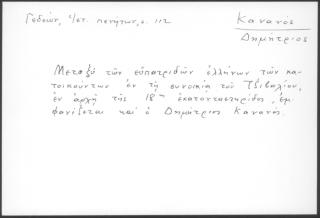 Γεδεών, σ/στ. πενήτων, σ. 112
Κανανος
Δημήτριος
Μεταξύ τῶν εὐπατριδῶν ἑλλήνων τῶν κα-
τοικούντων ἐν τῇ συνοικίᾳ τοῦ Τζιβαλίου,
ἐν ἀρχῇ τῆς 18ης ἑκατονταετηρίδος, ἐμ-
φανίζεται καί ὁ Δημήτριος Κανανος.